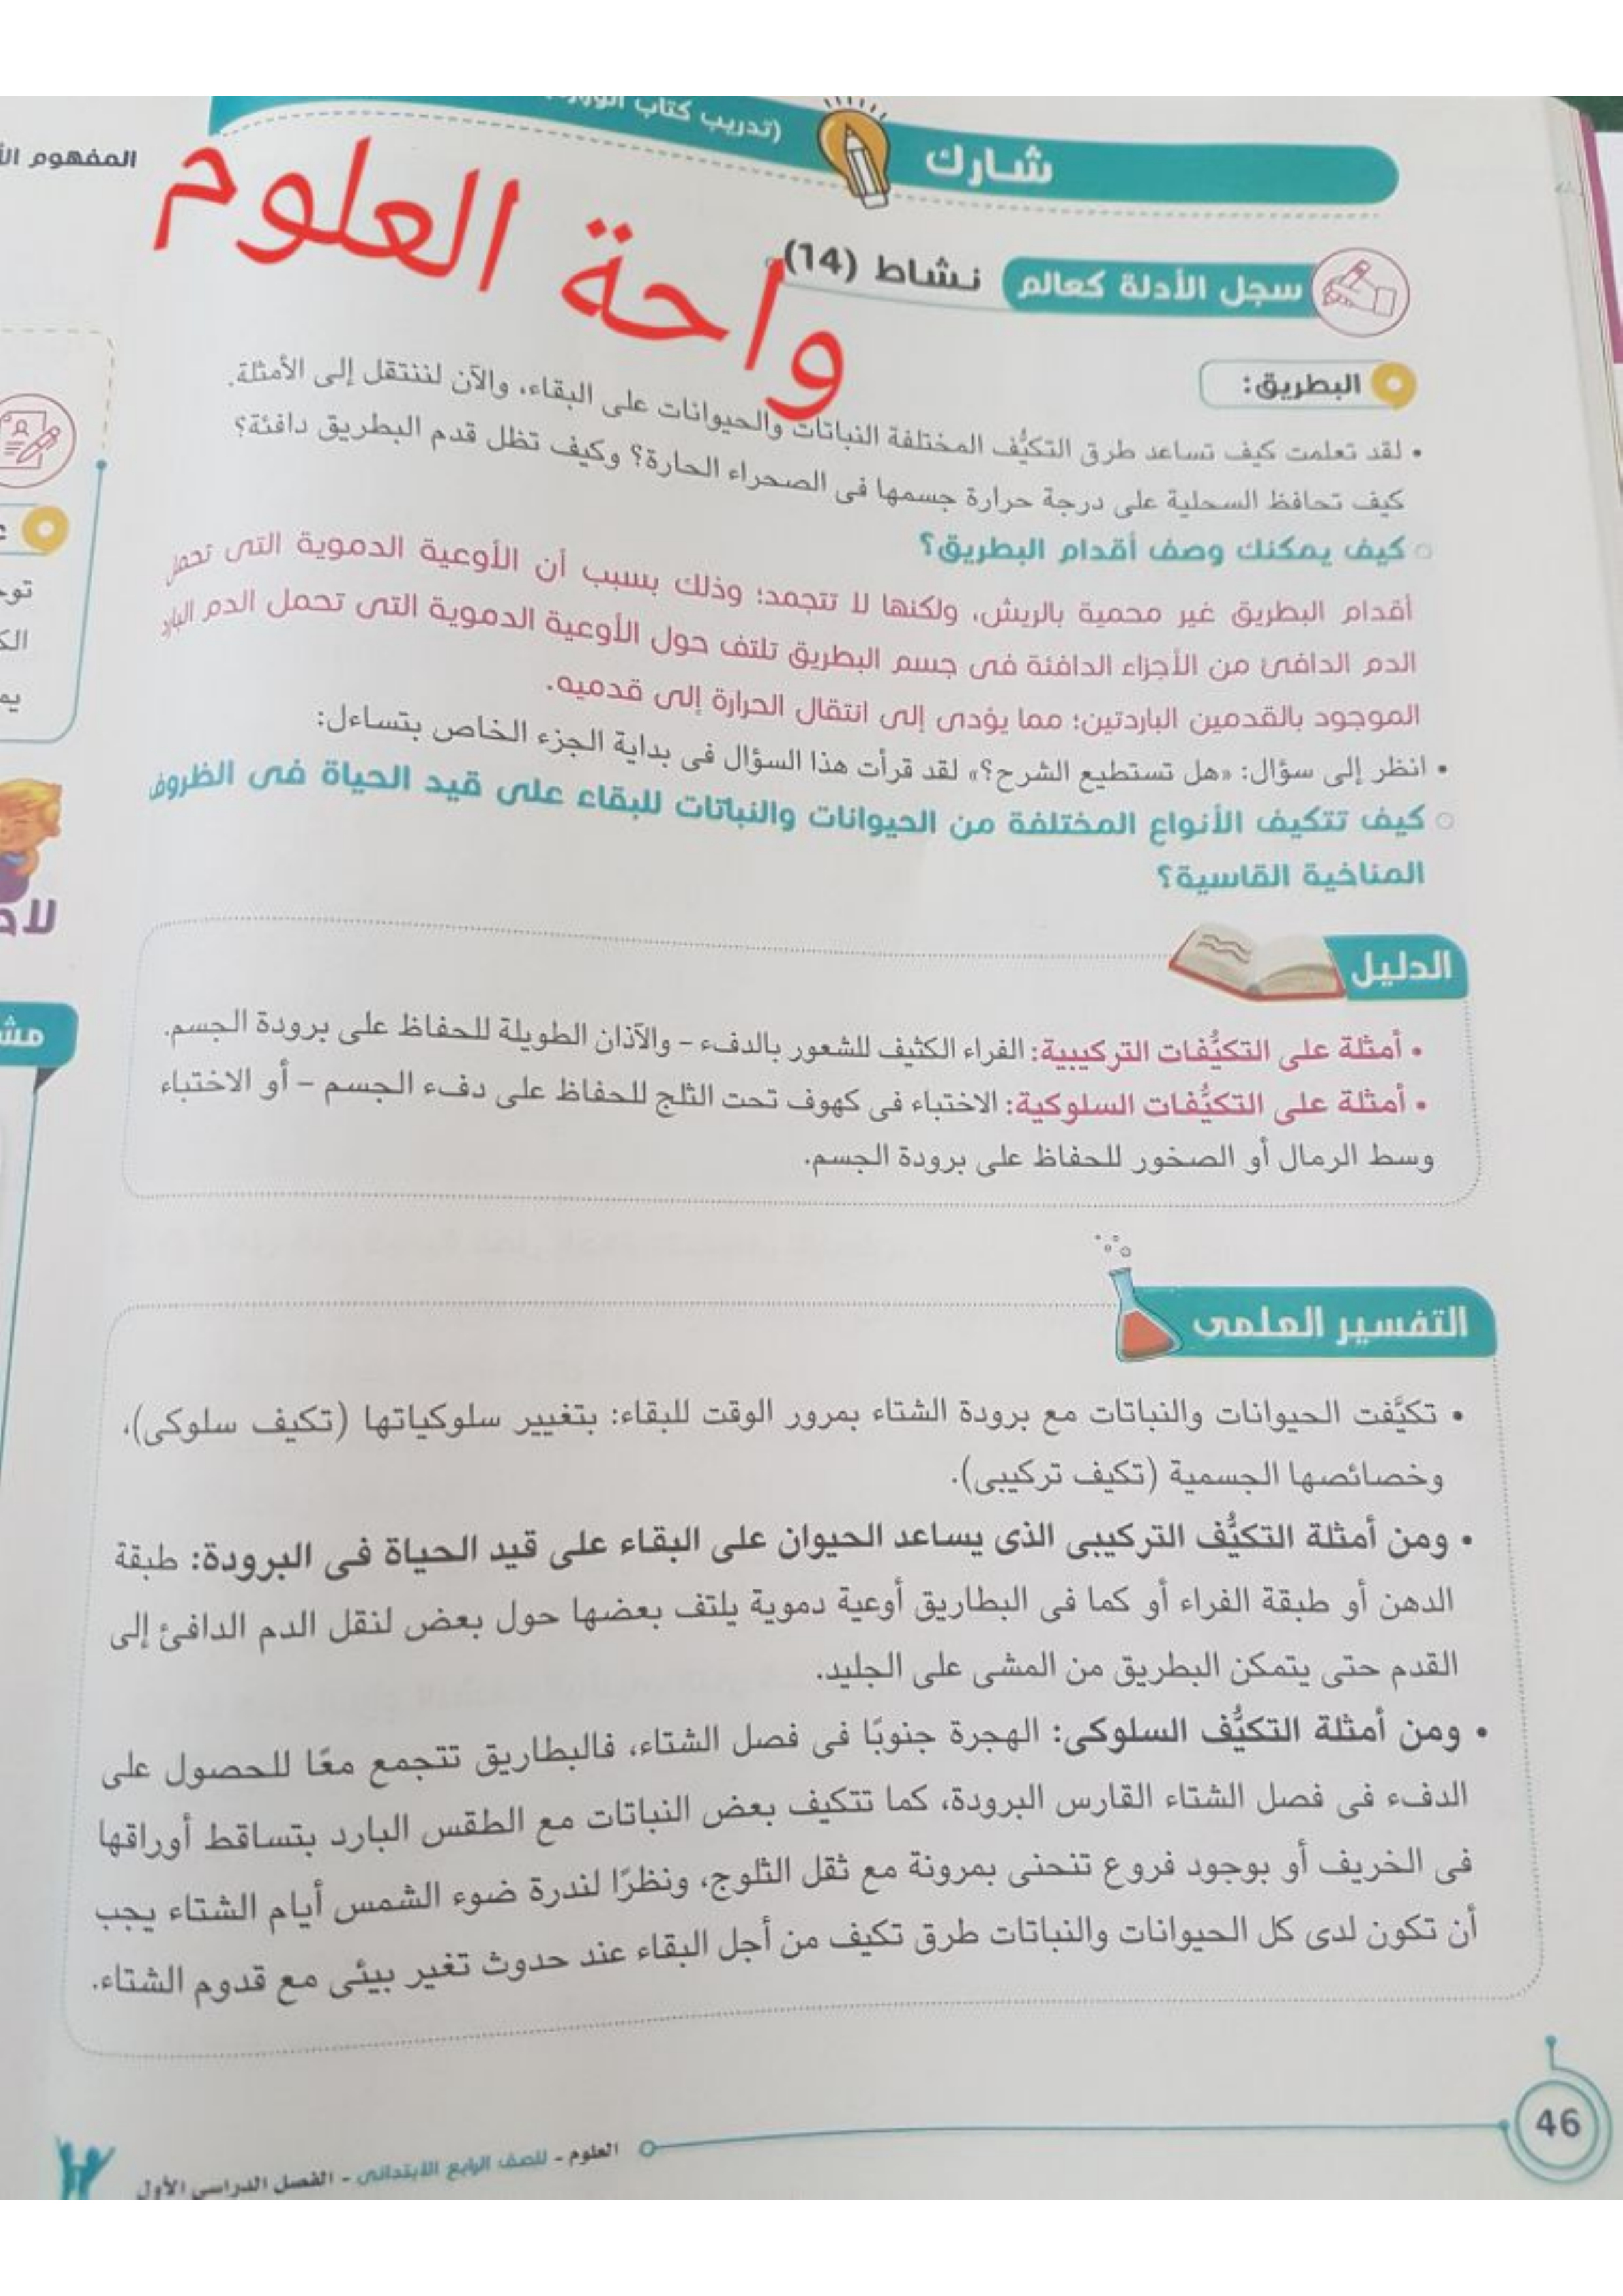 (تدريب كتاب
شارك
المفهوم
واحة العلوم
سجل الأدلة كعالم
نشاط (14)
البطريق:
• لقد تعلمت كيف تساعد طرق التكيُّف المختلفة النباتات والحيوانات على البقاء، والآن لننتقل إلى الأمثلة.
كيف تحافظ السحلية على درجة حرارة جسمها فى الصحراء الحارة؟ وكيف تظل قدم البطريق دافئة؟
كيف يمكنك وصف أقدام البطريق؟
أقدام البطريق غير محمية بالريش، ولكنها لا تتجمد؛ وذلك بسبب أن الأوعية الدموية التى تحمل
الدم الدافئ من الأجزاء الدافئة فى جسم البطريق تلتف حول الأوعية الدموية التى تحمل الدم البارد
الموجود بالقدمين الباردتين؛ مما يؤدى إلى انتقال الحرارة إلى قدميه.
• انظر إلى سؤال: «هل تستطيع الشرح؟» لقد قرأت هذا السؤال فى بداية الجزء الخاص بتساءل:
كيف تتكيف الأنواع المختلفة من الحيوانات والنباتات للبقاء على قيد الحياة فى الظروف
المناخية القاسية؟
الدليل
• أمثلة على التكيُّفات التركيبية: الفراء الكثيف للشعور بالدفء – والآذان الطويلة للحفاظ على برودة الجسم.
• أمثلة على التكيُّفات السلوكية: الاختباء فى كهوف تحت الثلج للحفاظ على دفء الجسم – أو الاختباء
وسط الرمال أو الصخور للحفاظ على برودة الجسم.
التفسير العلمى
• تكيَّفت الحيوانات والنباتات مع برودة الشتاء بمرور الوقت للبقاء: بتغيير سلوكياتها (تكيف سلوكى)،
وخصائصها الجسمية (تكيف تركيبى).
• ومن أمثلة التكيُّف التركيبى الذى يساعد الحيوان على البقاء على قيد الحياة فى البرودة: طبقة
الدهن أو طبقة الفراء أو كما فى البطاريق أوعية دموية يلتف بعضها حول بعض لنقل الدم الدافئ إلى
القدم حتى يتمكن البطريق من المشى على الجليد.
• ومن أمثلة التكيُّف السلوكى: الهجرة جنوبًا فى فصل الشتاء، فالبطاريق تتجمع معًا للحصول على
الدفء فى فصل الشتاء القارس البرودة، كما تتكيف بعض النباتات مع الطقس البارد بتساقط أوراقها
فى الخريف أو بوجود فروع تنحنى بمرونة مع ثقل الثلوج، ونظرًا لندرة ضوء الشمس أيام الشتاء يجب
أن تكون لدى كل الحيوانات والنباتات طرق تكيف من أجل البقاء عند حدوث تغير بيئى مع قدوم الشتاء.
46
العلوم - للصف الرابع الابتدائى - الفصل الدراسى الأول